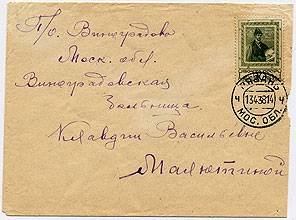 П/о Виноградово
Моск. обл.
Виноградовская
больница
Клавдии Васильевне
Малютиной
МОС. ОБЛ.